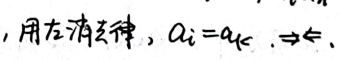 ，用左消去律，aᵢ=aₖ .⇒⇐.